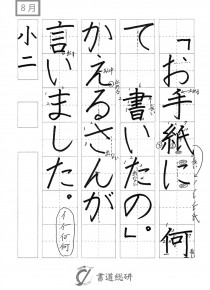 8月
「お手紙に 何
て 書いたの」。
かえるさんが
言いました。
小二
イ 仁 何 何
書道総研